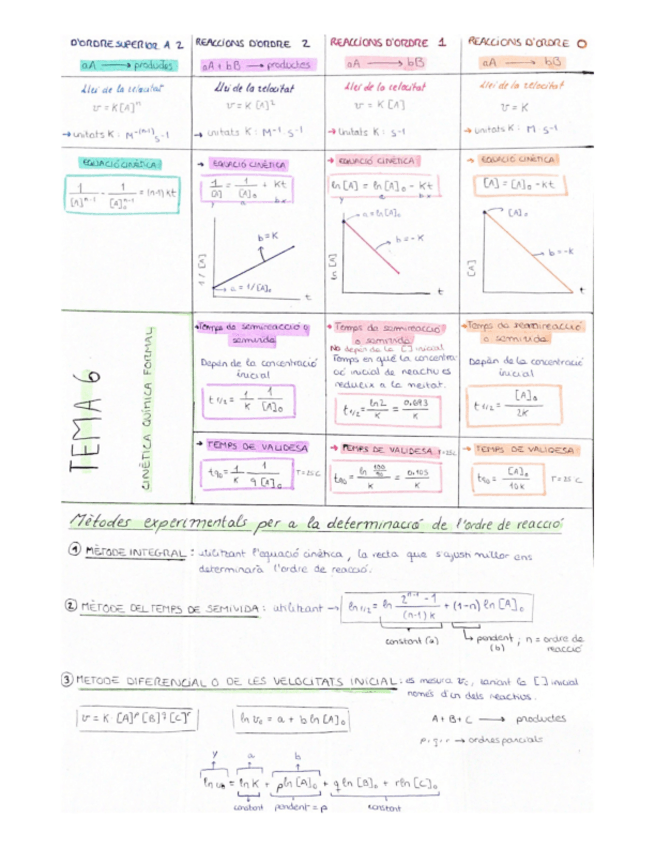 D'ORDRE SUPERIOR A 2
aA ⟶ productes
Llei de la velocitat
v = K [A]ⁿ
→ unitats K: M⁻⁽ⁿ⁻¹⁾ s⁻¹
EQUACIÓ CINÈTICA
1/[A]ⁿ⁻¹ - 1/[A]₀ⁿ⁻¹ = (n-1) Kt
REACCIONS D'ORDRE 2
aA + bB ⟶ productes
Llei de la velocitat
v = K [A]²
→ unitats K: M⁻¹ · s⁻¹
→ EQUACIÓ CINÈTICA
1/[A] = 1/[A]₀ + Kt
y a bx
1/[A]
b = K
a = 1/[A]₀
t
REACCIONS D'ORDRE 1
aA ⟶ bB
Llei de la velocitat
v = K [A]
→ unitats K: s⁻¹
→ EQUACIÓ CINÈTICA
ln [A] = ln [A]₀ - Kt
y a bx
ln [A]
a = ln [A]₀
b = -K
t
REACCIONS D'ORDRE 0
aA ⟶ bB
Llei de la velocitat
v = K
→ unitats K: M · s⁻¹
→ EQUACIÓ CINÈTICA
[A] = [A]₀ - Kt
[A]
[A]₀
b = -K
t
TEMA 6
CINÈTICA QUÍMICA FORMAL
→ Temps de semireacció o
semivida
Depèn de la concentració
inicial
t1/2 = 1/K · 1/[A]₀
→ TEMPS DE VALIDESA
t90 = 1/K · 1/9[A]₀
T = 25°C
→ Temps de semireacció
o semivida
No depèn de la [ ] inicial
Temps en què la concentra-
ció inicial de reactiu es
redueix a la meitat.
t1/2 = ln2/K = 0.693/K
→ TEMPS DE VALIDESA T=25°C
t90 = ln 100/90 / K = 0.105/K
→ Temps de semireacció
o semivida
Depèn de la concentració
inicial
t1/2 = [A]₀/2K
→ TEMPS DE VALIDESA
t90 = [A]₀/10K
T = 25°C
Mètodes experimentals per a la determinació de l'ordre de reacció
① MÈTODE INTEGRAL: utilitzant l'equació cinètica, la recta que s'ajusti millor ens
determinarà l'ordre de reacció.
② MÈTODE DEL TEMPS DE SEMIVIDA: utilitzant → ln1/2 = ln 2ⁿ⁻¹ - 1/(n-1) K + (1-n) ln [A]₀
constant (a)
pendent; n = ordre de
(b) reacció
③ METODE DIFERENCIAL O DE LES VELOCITATS INICIAL: es mesura v₀, variant la [ ] inicial
només d'un dels reactius.
v = K [A]ᵖ [B]q [C]ʳ
ln v₀ = a + b ln [A]₀
A + B + C ⟶ productes
p, q, r → ordres parcials
y a b
ln v₀ = ln K + pln [A]₀ + q ln [B]₀ + rln [C]₀
constant pendent = p constant